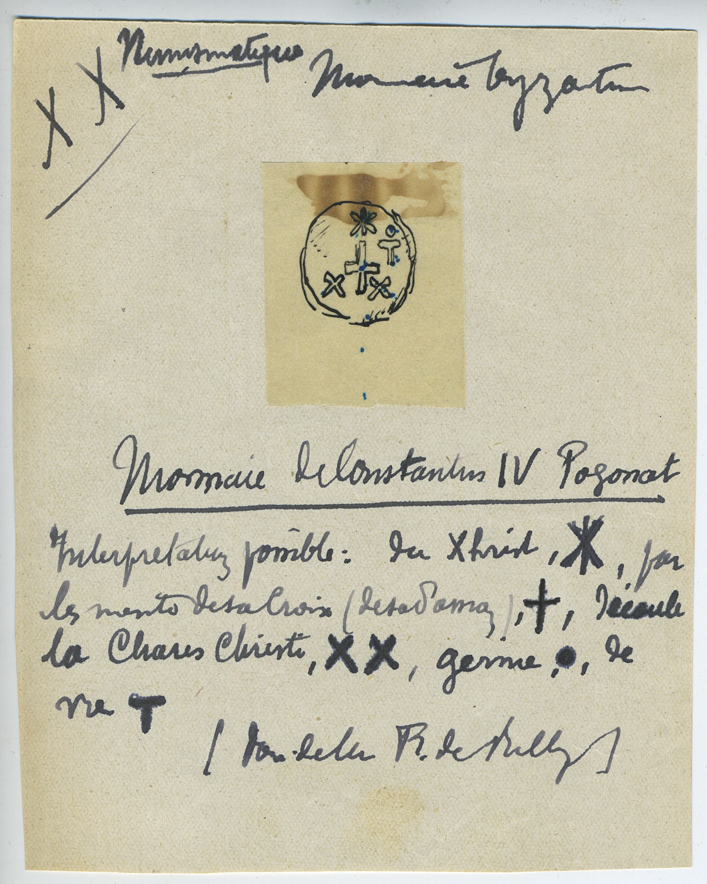 X X Numismatique Monnaie byzantine
Monnaie de Constantin IV Pogonat
Interprétation possible : du Xhrist, , par
les ments de sa Croix (de sa ), †, découle
la Chares Christi, XX, germe, ●, de
vie T
[ Don de R. de ]